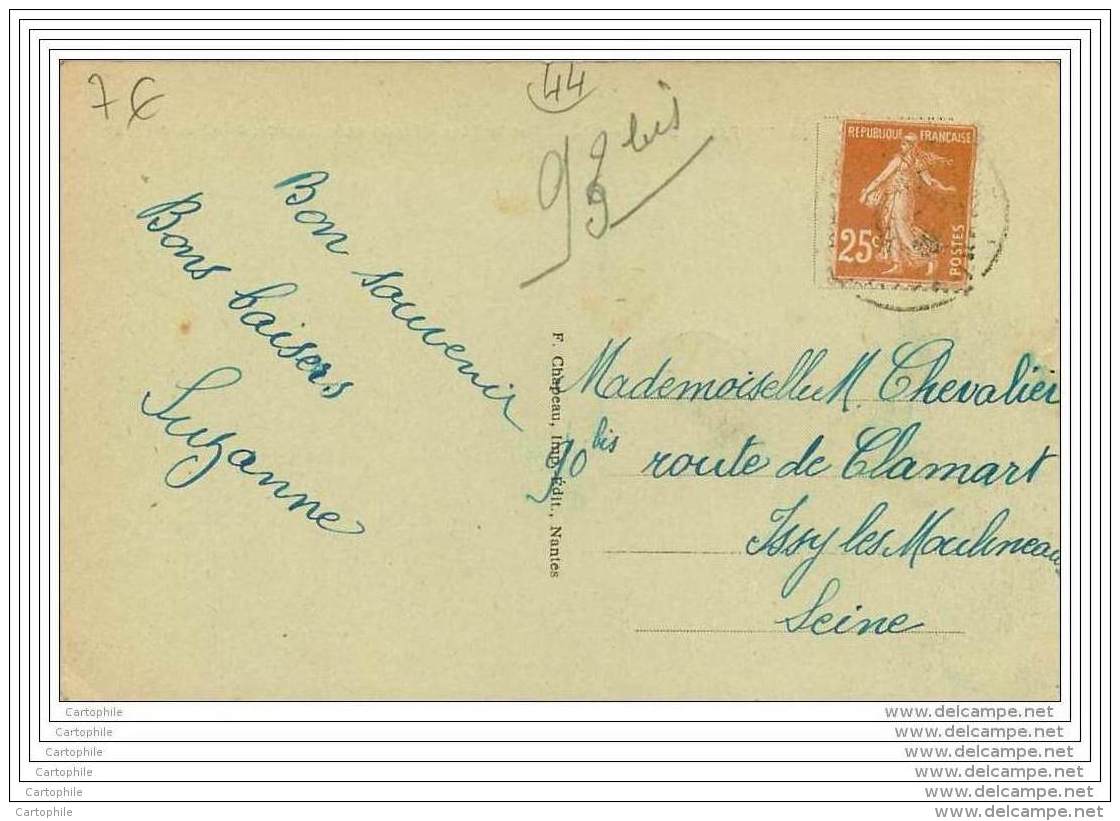 7€
44
93 bis
REPUBLIQUE FRANÇAISE
25c
POSTES
Bon souvenir
Bons baisers
Suzanne
F. Chapeau, Imp. Édit., Nantes
Mademoiselle M. Chevalier
90 bis route de Clamart
Issy les Moulineaux
Seine
Cartophile www.delcampe.net
Cartophile www.delcampe.net
Cartophile www.delcampe.net
Cartophile www.delcampe.net
Cartophile www.delcampe.net
Cartophile www.delcampe.net